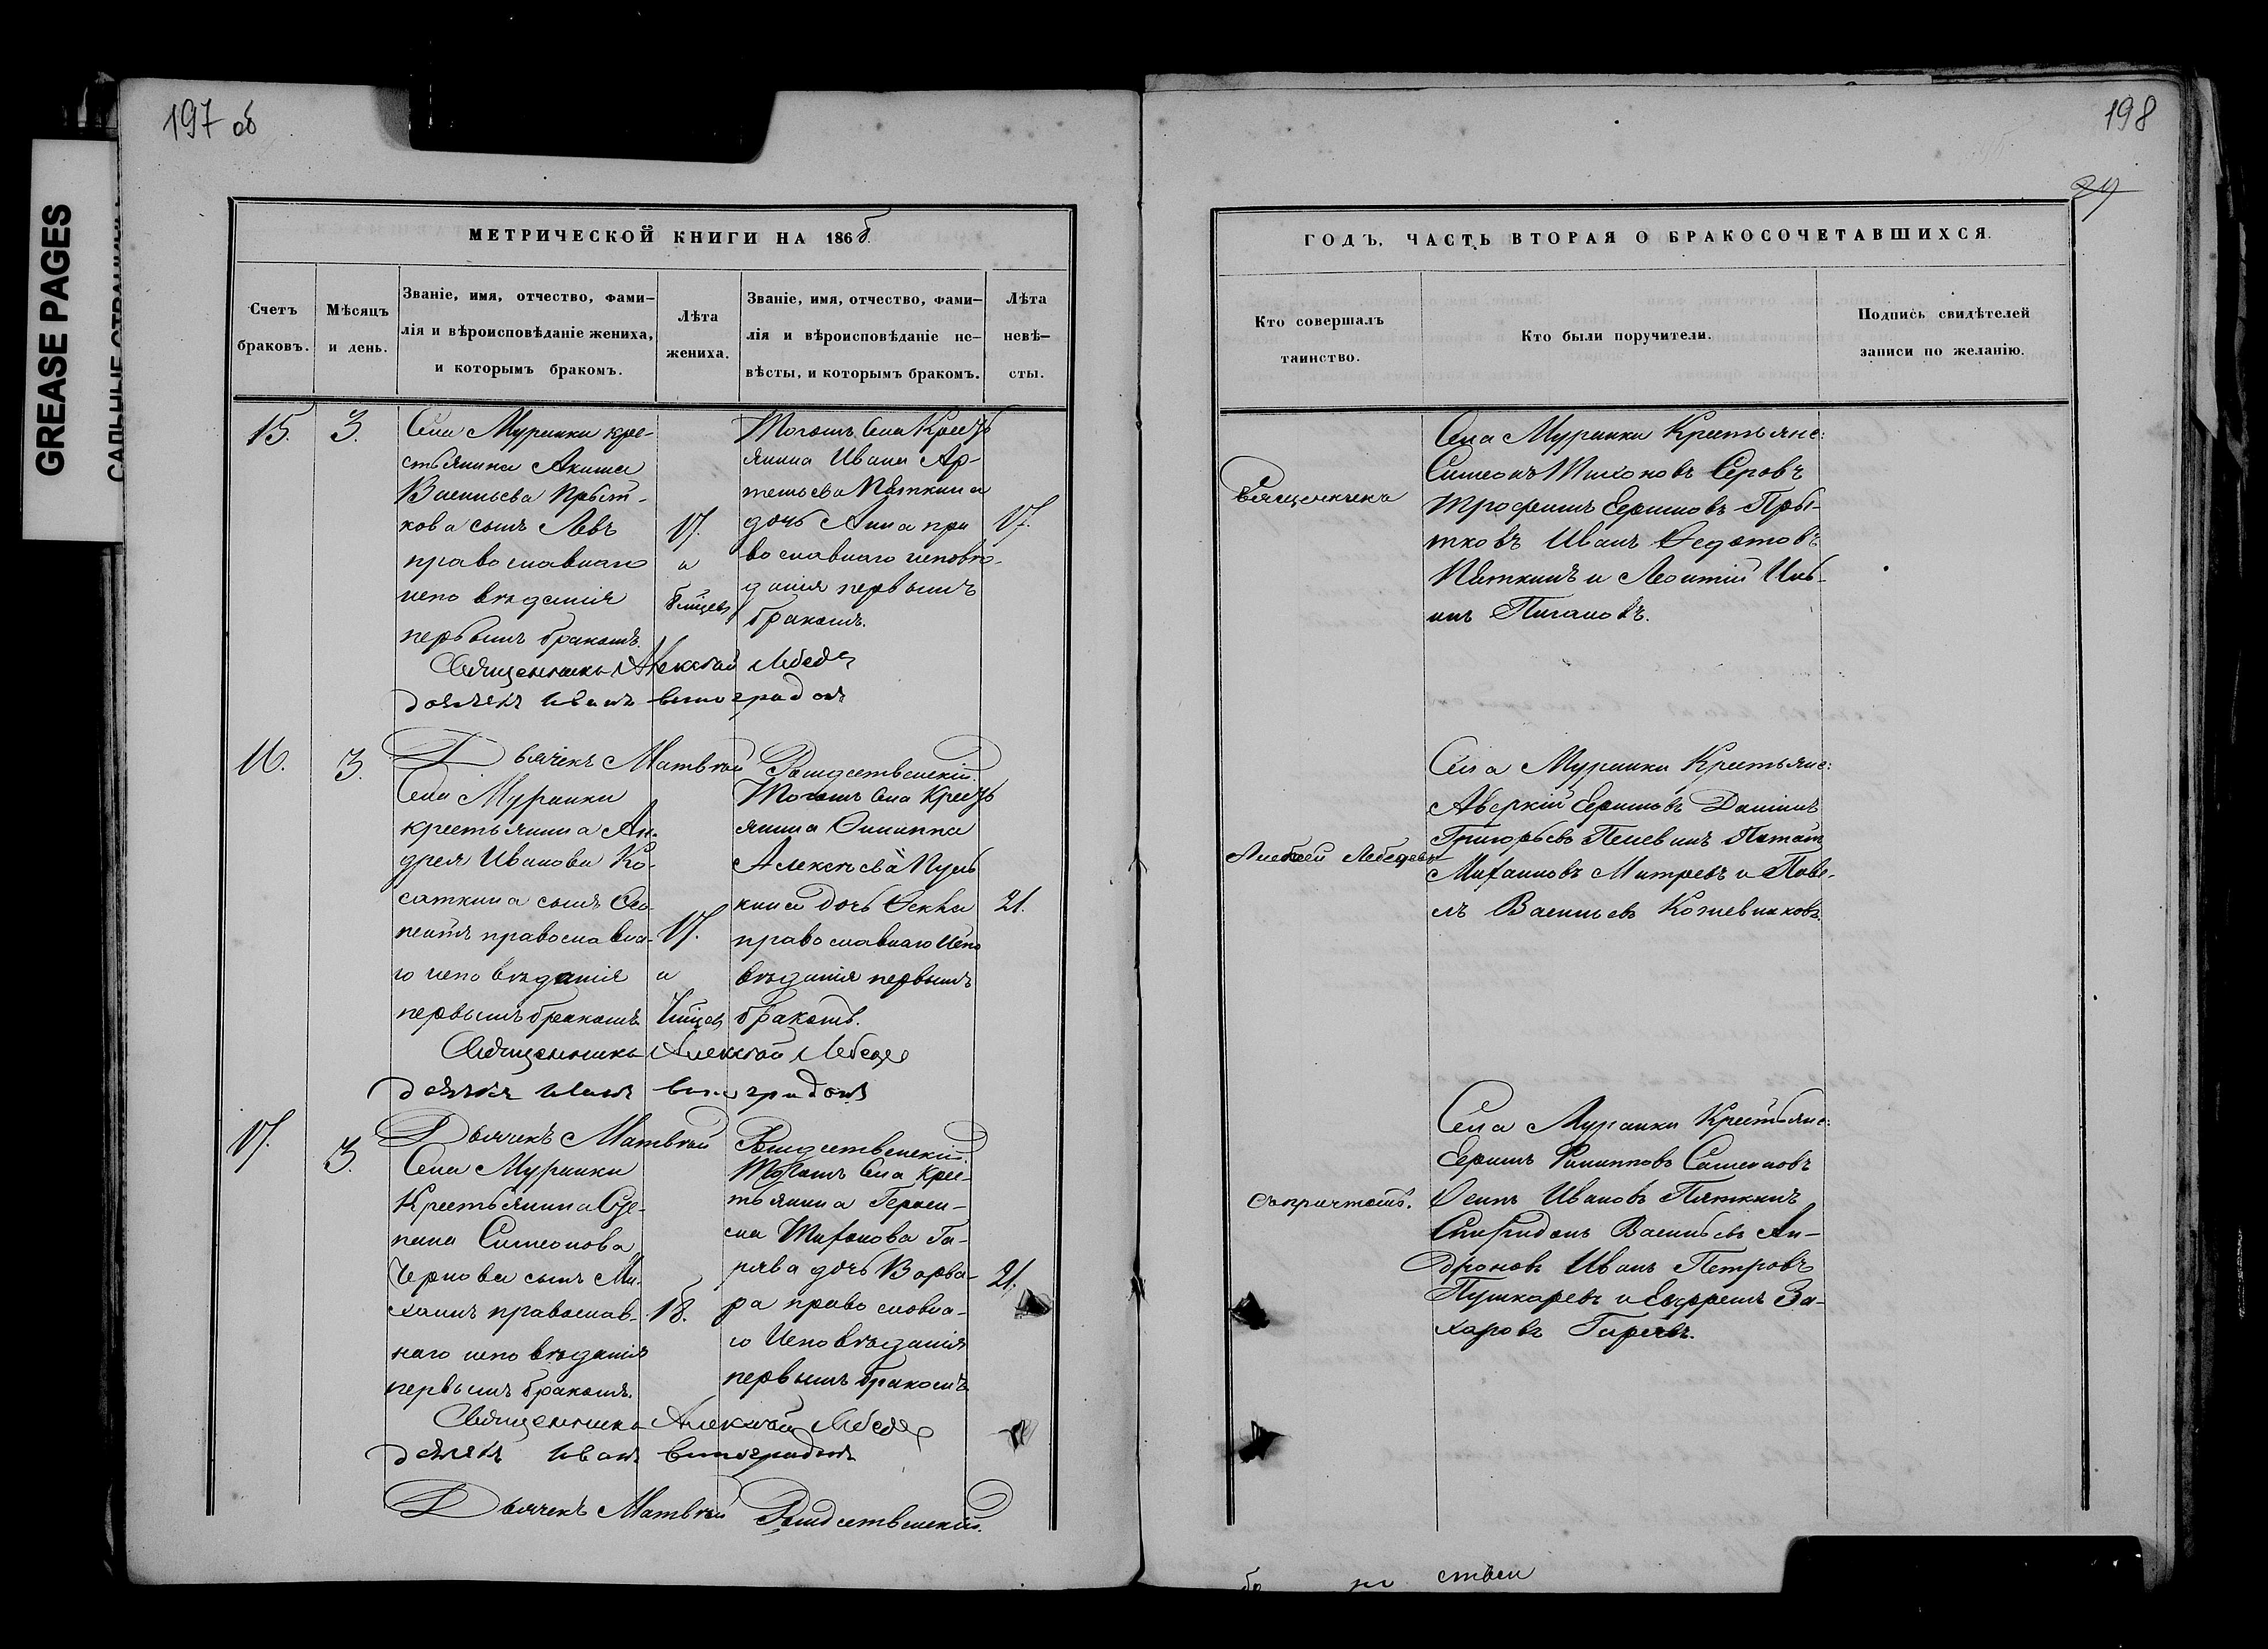 GREASE PAGES
197 об
МЕТРИЧЕСКОЙ КНИГИ НА 1866.
Счетъ браковъ.
Мѣсяцъ и день.
Званіе, имя, отчество, фами-
лія и вѣроисповѣданіе жениха,
и которымъ бракомъ.
Лѣта
жениха.
Званіе, имя, отчество, фами-
лія и вѣроисповѣданіе не-
вѣсты, и которымъ бракомъ.
Лѣта
невѣ-
сты.
15.
3.
Села Муранки кре-
стьянина Акима
Васильева Прыт-
кова сынъ Левъ
православнаго
исповѣданія
первымъ бракомъ.
17.
и
Тогожъ Села Кресть
янина Ивана Ар-
темьева Пяткина
дочь Анна пра
вославнаго исповѣ-
данія первымъ
бракомъ.
17.
Священникъ Алексѣй Лебедев
Иванъ Виноградовъ
Дьячекъ Матвѣй Рождественскій.
16.
3.
Села Муранки
крестьянина Ан-
дрея Иванова Ко-
саткина сынъ
православна-
го исповѣданія
первымъ бракомъ
17.
и
Тогожъ Села Кресть
янина Филиппа
Алексѣева
кина дочь Фекла
православнаго Испо
вѣданія первымъ
бракомъ.
21.
Священникъ Алексѣй Лебедев
Иванъ Виноградовъ
Дьячекъ Матвѣй Рождественскій.
17.
3.
Села Муранки
Крестьянина Сте-
пана Симеонова
Чернова сынъ Ми-
хаилъ православ-
наго исповѣданія
первымъ бракомъ.
18.
Тогожъ Села Крес-
тьянина Гераси-
ма Тихонова Га-
дочь Варва-
ра православна-
го Исповѣданія
первымъ бракомъ
21.
Священникъ Алексѣй Лебедев
Иванъ Виноградовъ
Дьячекъ Матвѣй Рождественскій.
198
29
ГОДЪ, ЧАСТЬ ВТОРАЯ О БРАКОСОЧЕТАВШИХСЯ.
Кто совершалъ
таинство.
Кто были поручители.
Подпись свидѣтелей
записи по желанію.
Священникъ
Села Муранки Крестьяне:
Симеонъ Тихоновъ Серовъ
Трофимъ Ефимовъ Пры-
тковъ Иванъ Федотовъ
Пяткинъ и Леонтій Иль-
инъ
Алексѣй Лебедевъ
Села Муранки Крестьяне:
Аверкій Ефимовъ Даніилъ
Григорьевъ Пелевинъ
Михаиловъ Митревъ и Паве-
лъ Васильевъ Кожевниковъ
Съ причтомъ.
Села Муранки Крестьяне:
Ефимъ Филипповъ Симеоновъ
Осипъ Ивановъ Пяткинъ
Спиридонъ Васильевъ Ан-
дроновъ Иванъ Петровъ
Пушкаревъ и Ефремъ За-
харовъ